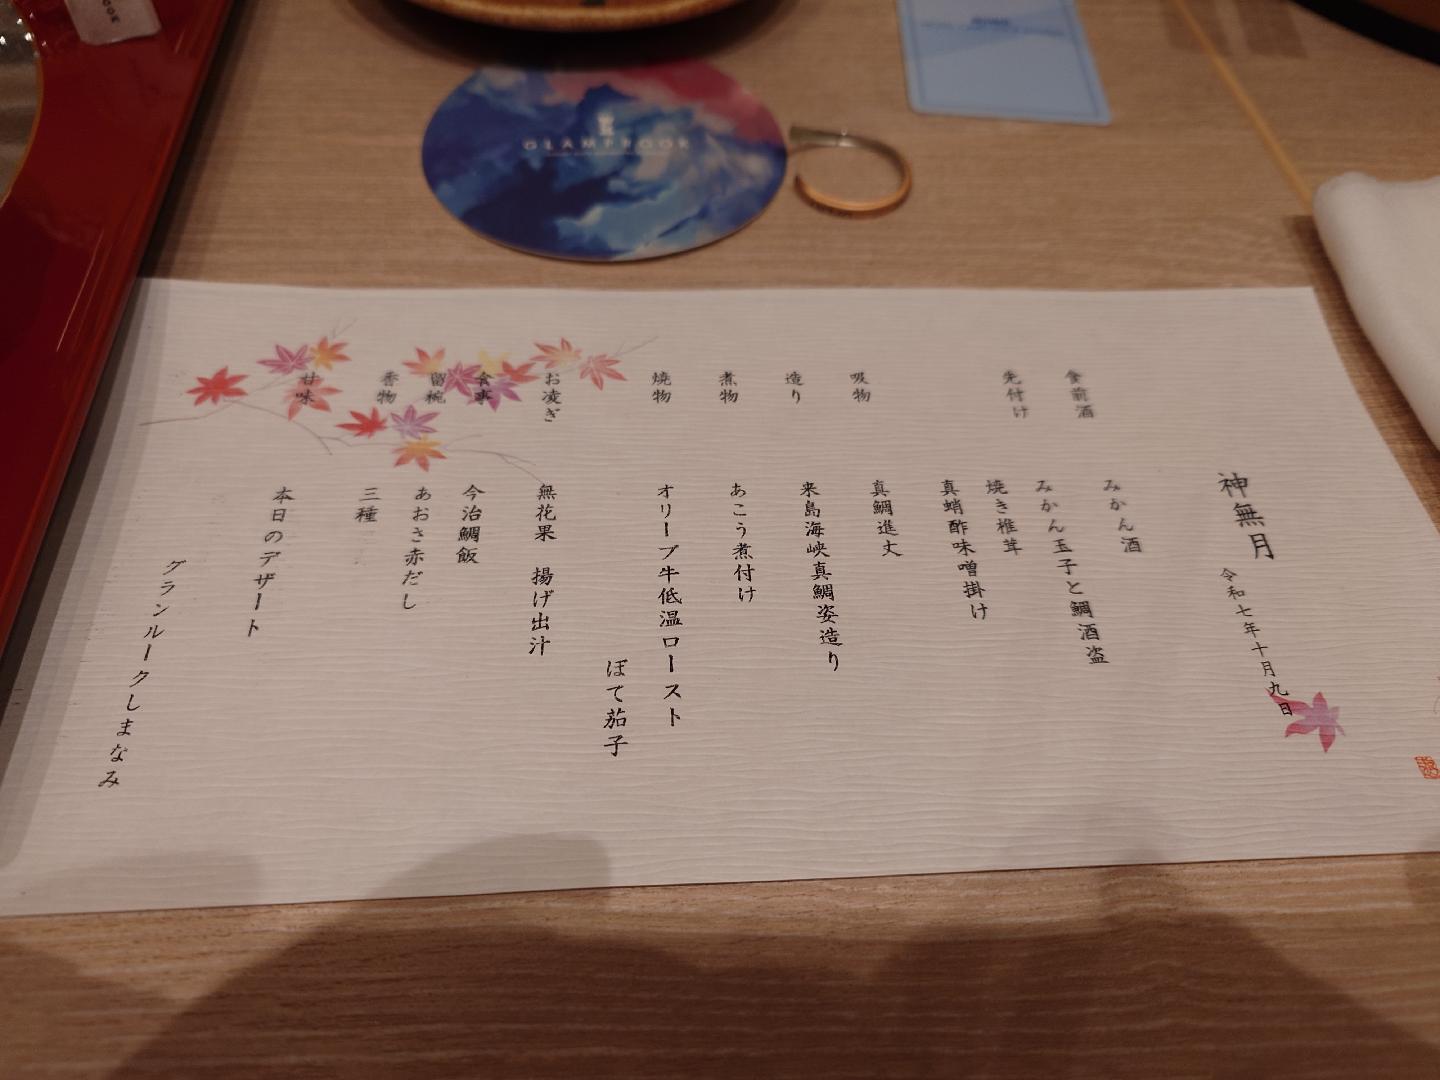 神無月 令和七年十月九日
食前酒 みかん酒
先付け みかん玉子と鯛酒盗
焼き椎茸
真蛸酢味噌掛け
吸物 真鯛進丈
造り 来島海峡真鯛姿造り
煮物 あこう煮付け
焼物 オリーブ牛低温ロースト
ぼて茄子
お凌ぎ 無花果 揚げ出汁
食事 今治鯛飯
留椀 あおさ赤だし
香物 三種
甘味 本日のデザート
グランルークしまなみ
GLAMPROOK